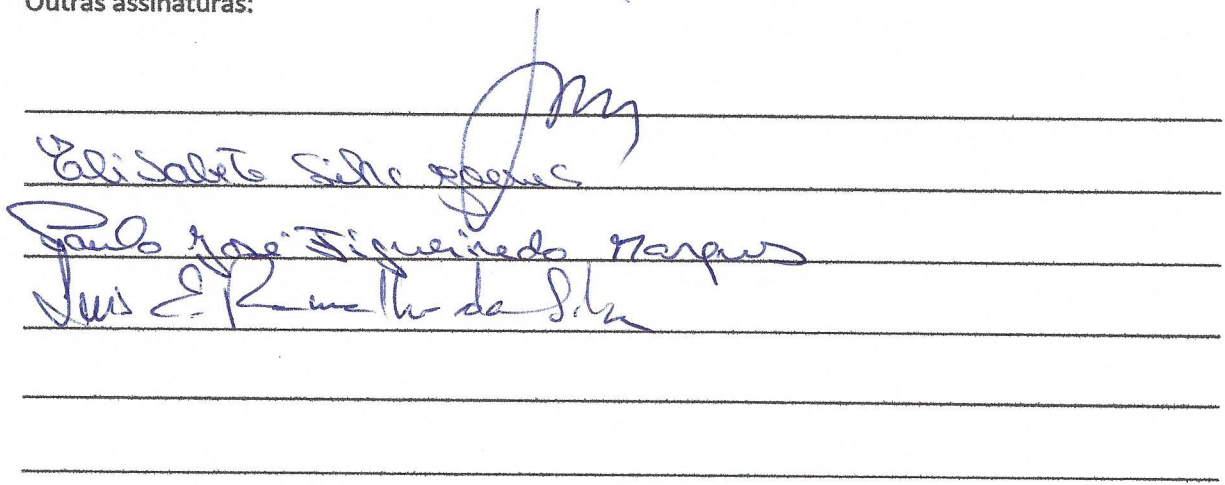 Outras assinaturas:
Elisabete Silva
Paulo José Figueiredo Marques
Luis E. Ramalho da Silva